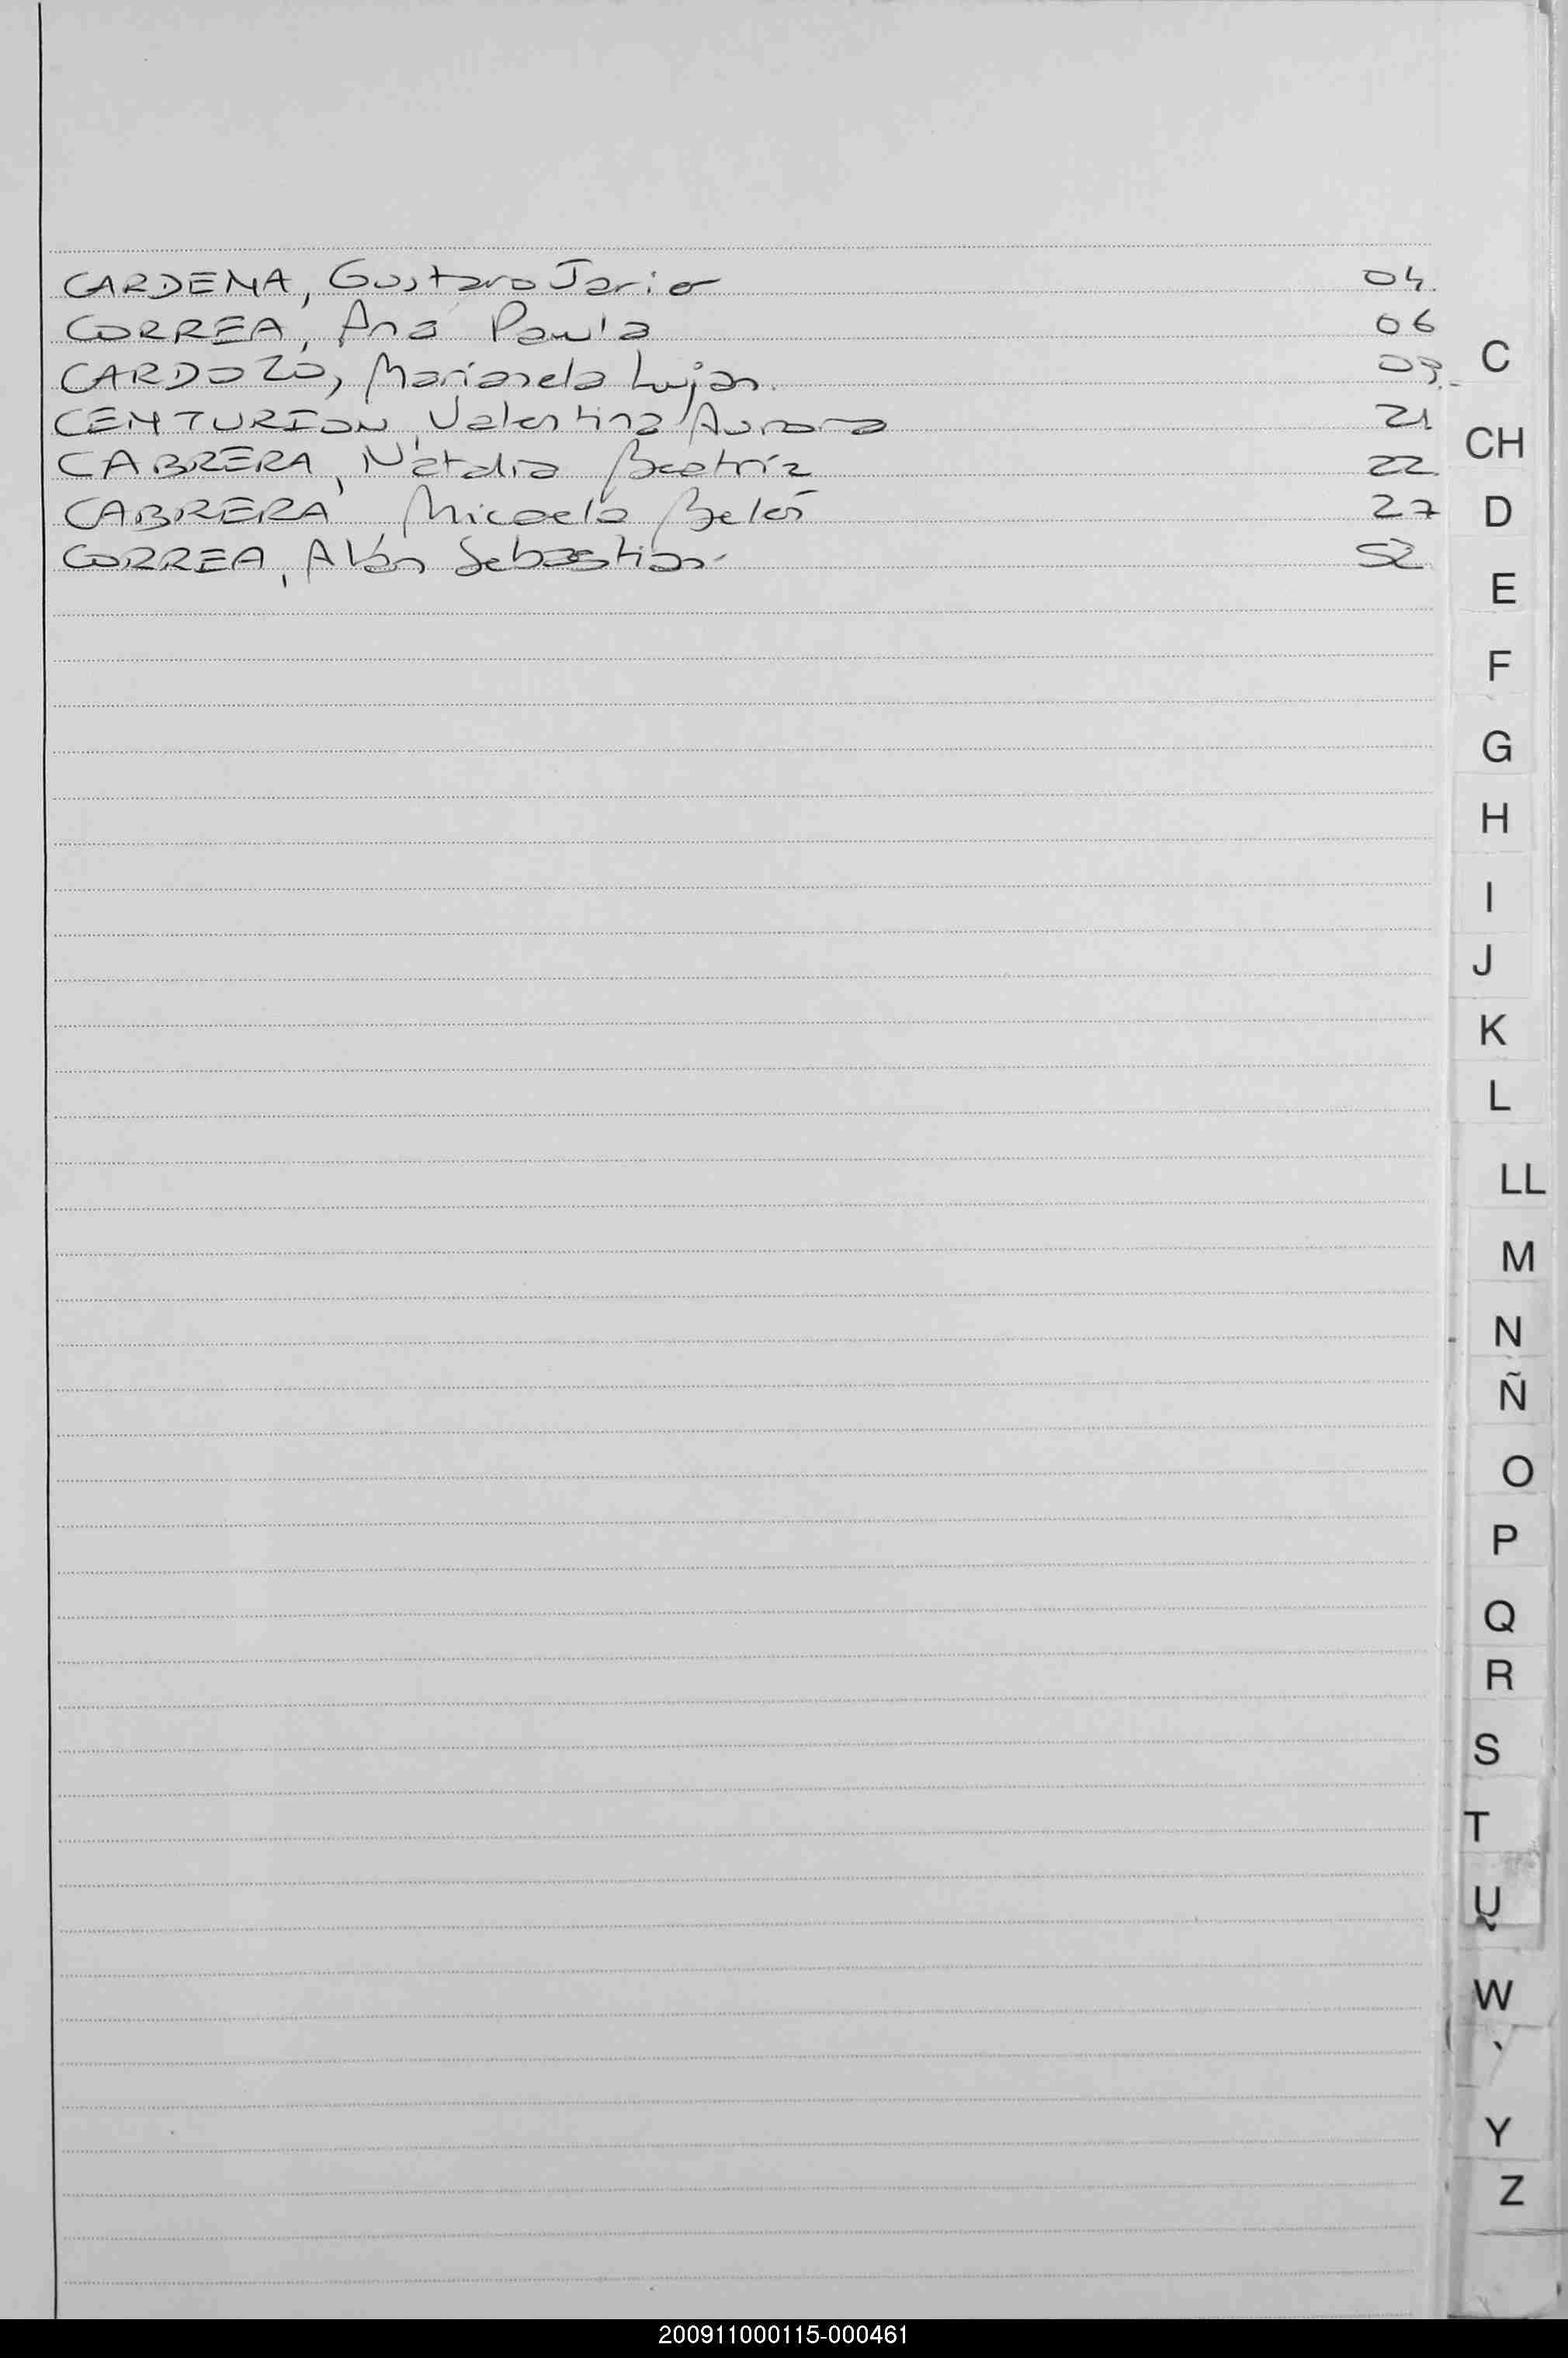 CARDENA, Gustavo Javier 04
CORREA, Ana Paula 06
CARDOZO, Marianela Lujan. 09.-
CENTURION, Valentina Aurora 21
CABRERA, Natalia Beatríz 22
CABRERA Micaela Belén 27
CORREA, Alán Sebastian 52
C
CH
D
E
F
G
H
I
J
K
L
LL
M
N
Ñ
O
P
Q
R
S
T
U
W
Y
Z
200911000115-000461